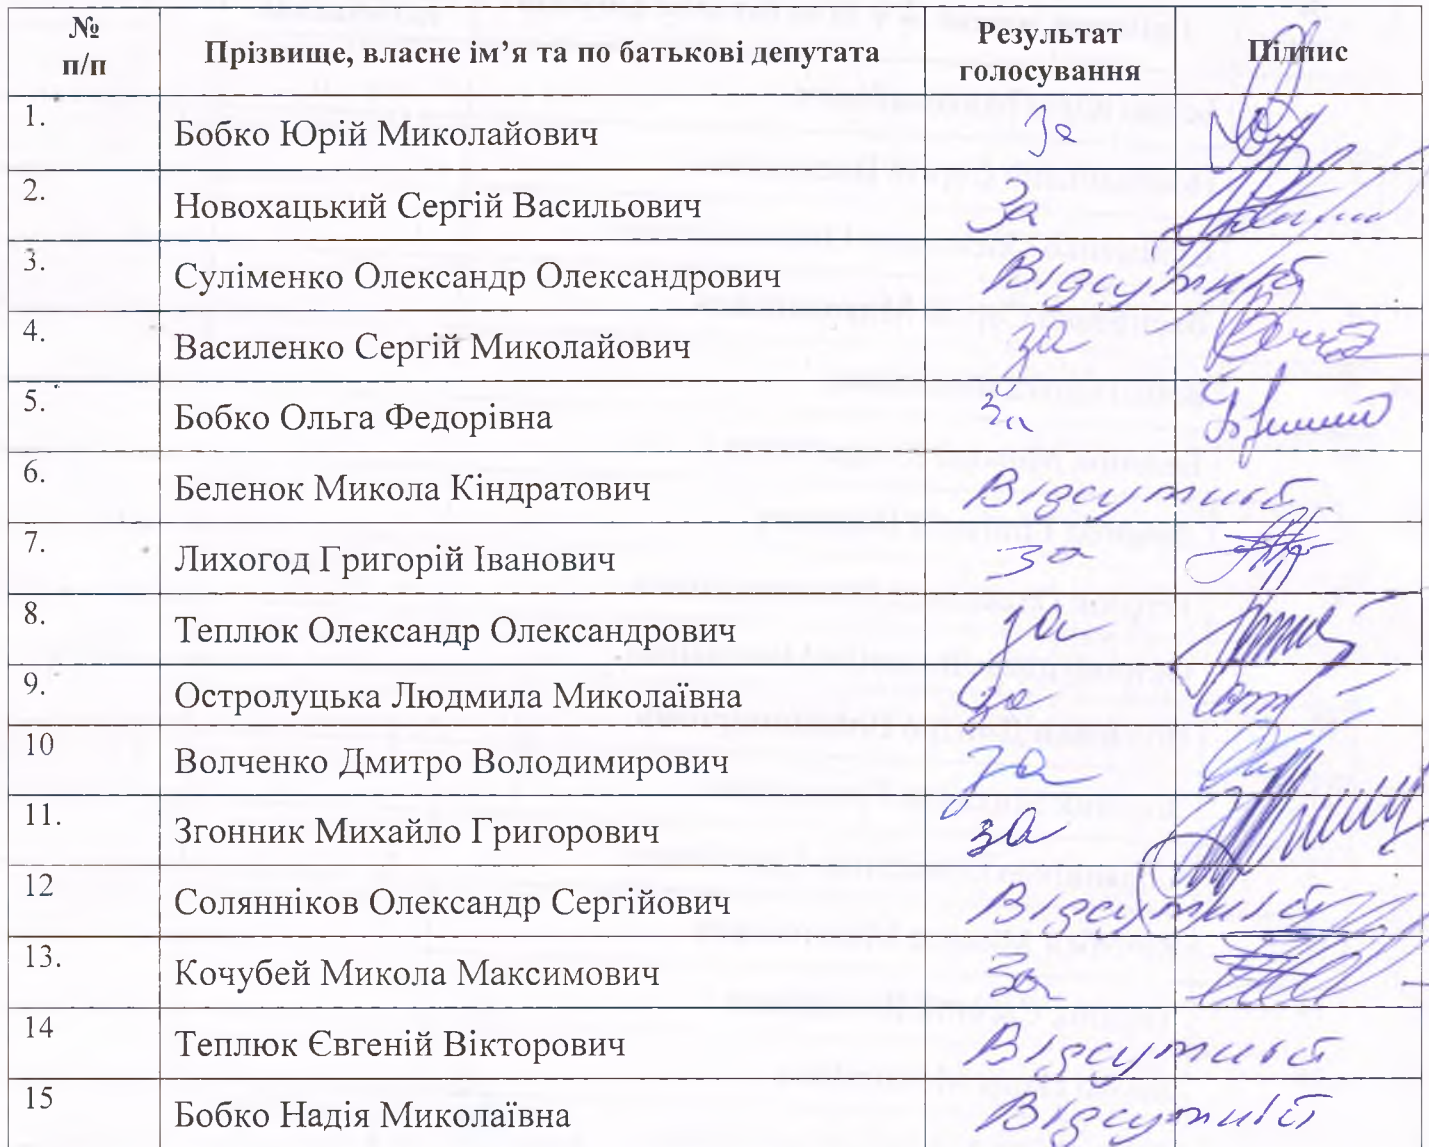 № п/п Прізвище, власне ім’я та по батькові депутата Результат голосування Підпис
1. Бобко Юрій Миколайович За
2. Новохацький Сергій Васильович За
3. Суліменко Олександр Олександрович Відсутній
4. Василенко Сергій Миколайович за
5. Бобко Ольга Федорівна За
6. Беленок Микола Кіндратович Відсутній
7. Лихогод Григорій Іванович За
8. Теплюк Олександр Олександрович за
9. Остролуцька Людмила Миколаївна за
10 Волченко Дмитро Володимирович За
11. Згонник Михайло Григорович за
12 Солянніков Олександр Сергійович Відсутній
13. Кочубей Микола Максимович За
14 Теплюк Євгеній Вікторович Відсутній
15 Бобко Надія Миколаївна Відсутній